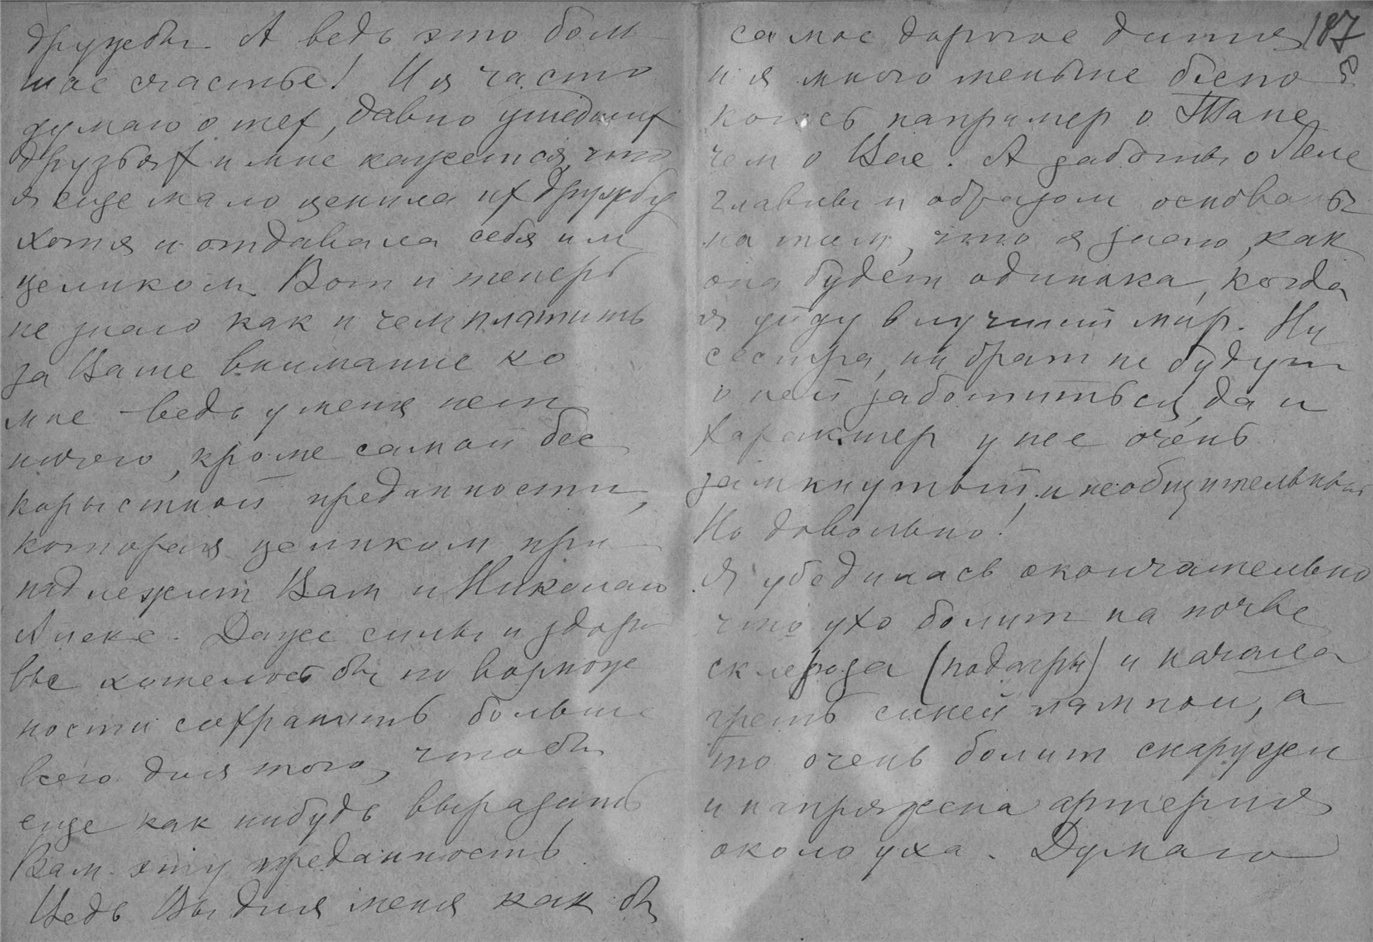 дружбы. А ведь это боль
шое счастье! И я часто
думаю о тех, давно ушедших
друзьях и мне кажется, что
я еще мало ценила их дружбу
хотя и отдавала себя им
целиком. Вот и теперь
не знаю как и чем платить
за Ваше внимание ко
мне – ведь у меня нет
ничего, кроме самой бес
корыстной преданности,
которая целиком при
надлежит Вам и Николаю
Алекс. Даже силы и здоро
вье хотелось бы по возмож
ности сохранить больше
всего для того, чтобы
еще как нибудь выразить
Вам эту преданность
Ведь Вы для меня как бы
187
самое дорогое дитя
и я много меньше беспо
коюсь например о Тане
чем о Вас. А заботы о Леле
главным образом основаны
на том, что я знаю, как
она будет одинока, когда
я уйду в лучший мир. Ни
сестра, ни брат не будут
о ней заботиться, да и
характер у нее очень
замкнутый и необщительный
Но довольно!
Я убедилась окончательно
что ухо болит на почве
склероза (подагры) и начала
греть синей лампой, а
то очень болит снаружи
и напряжена артерия
около уха. Думаю